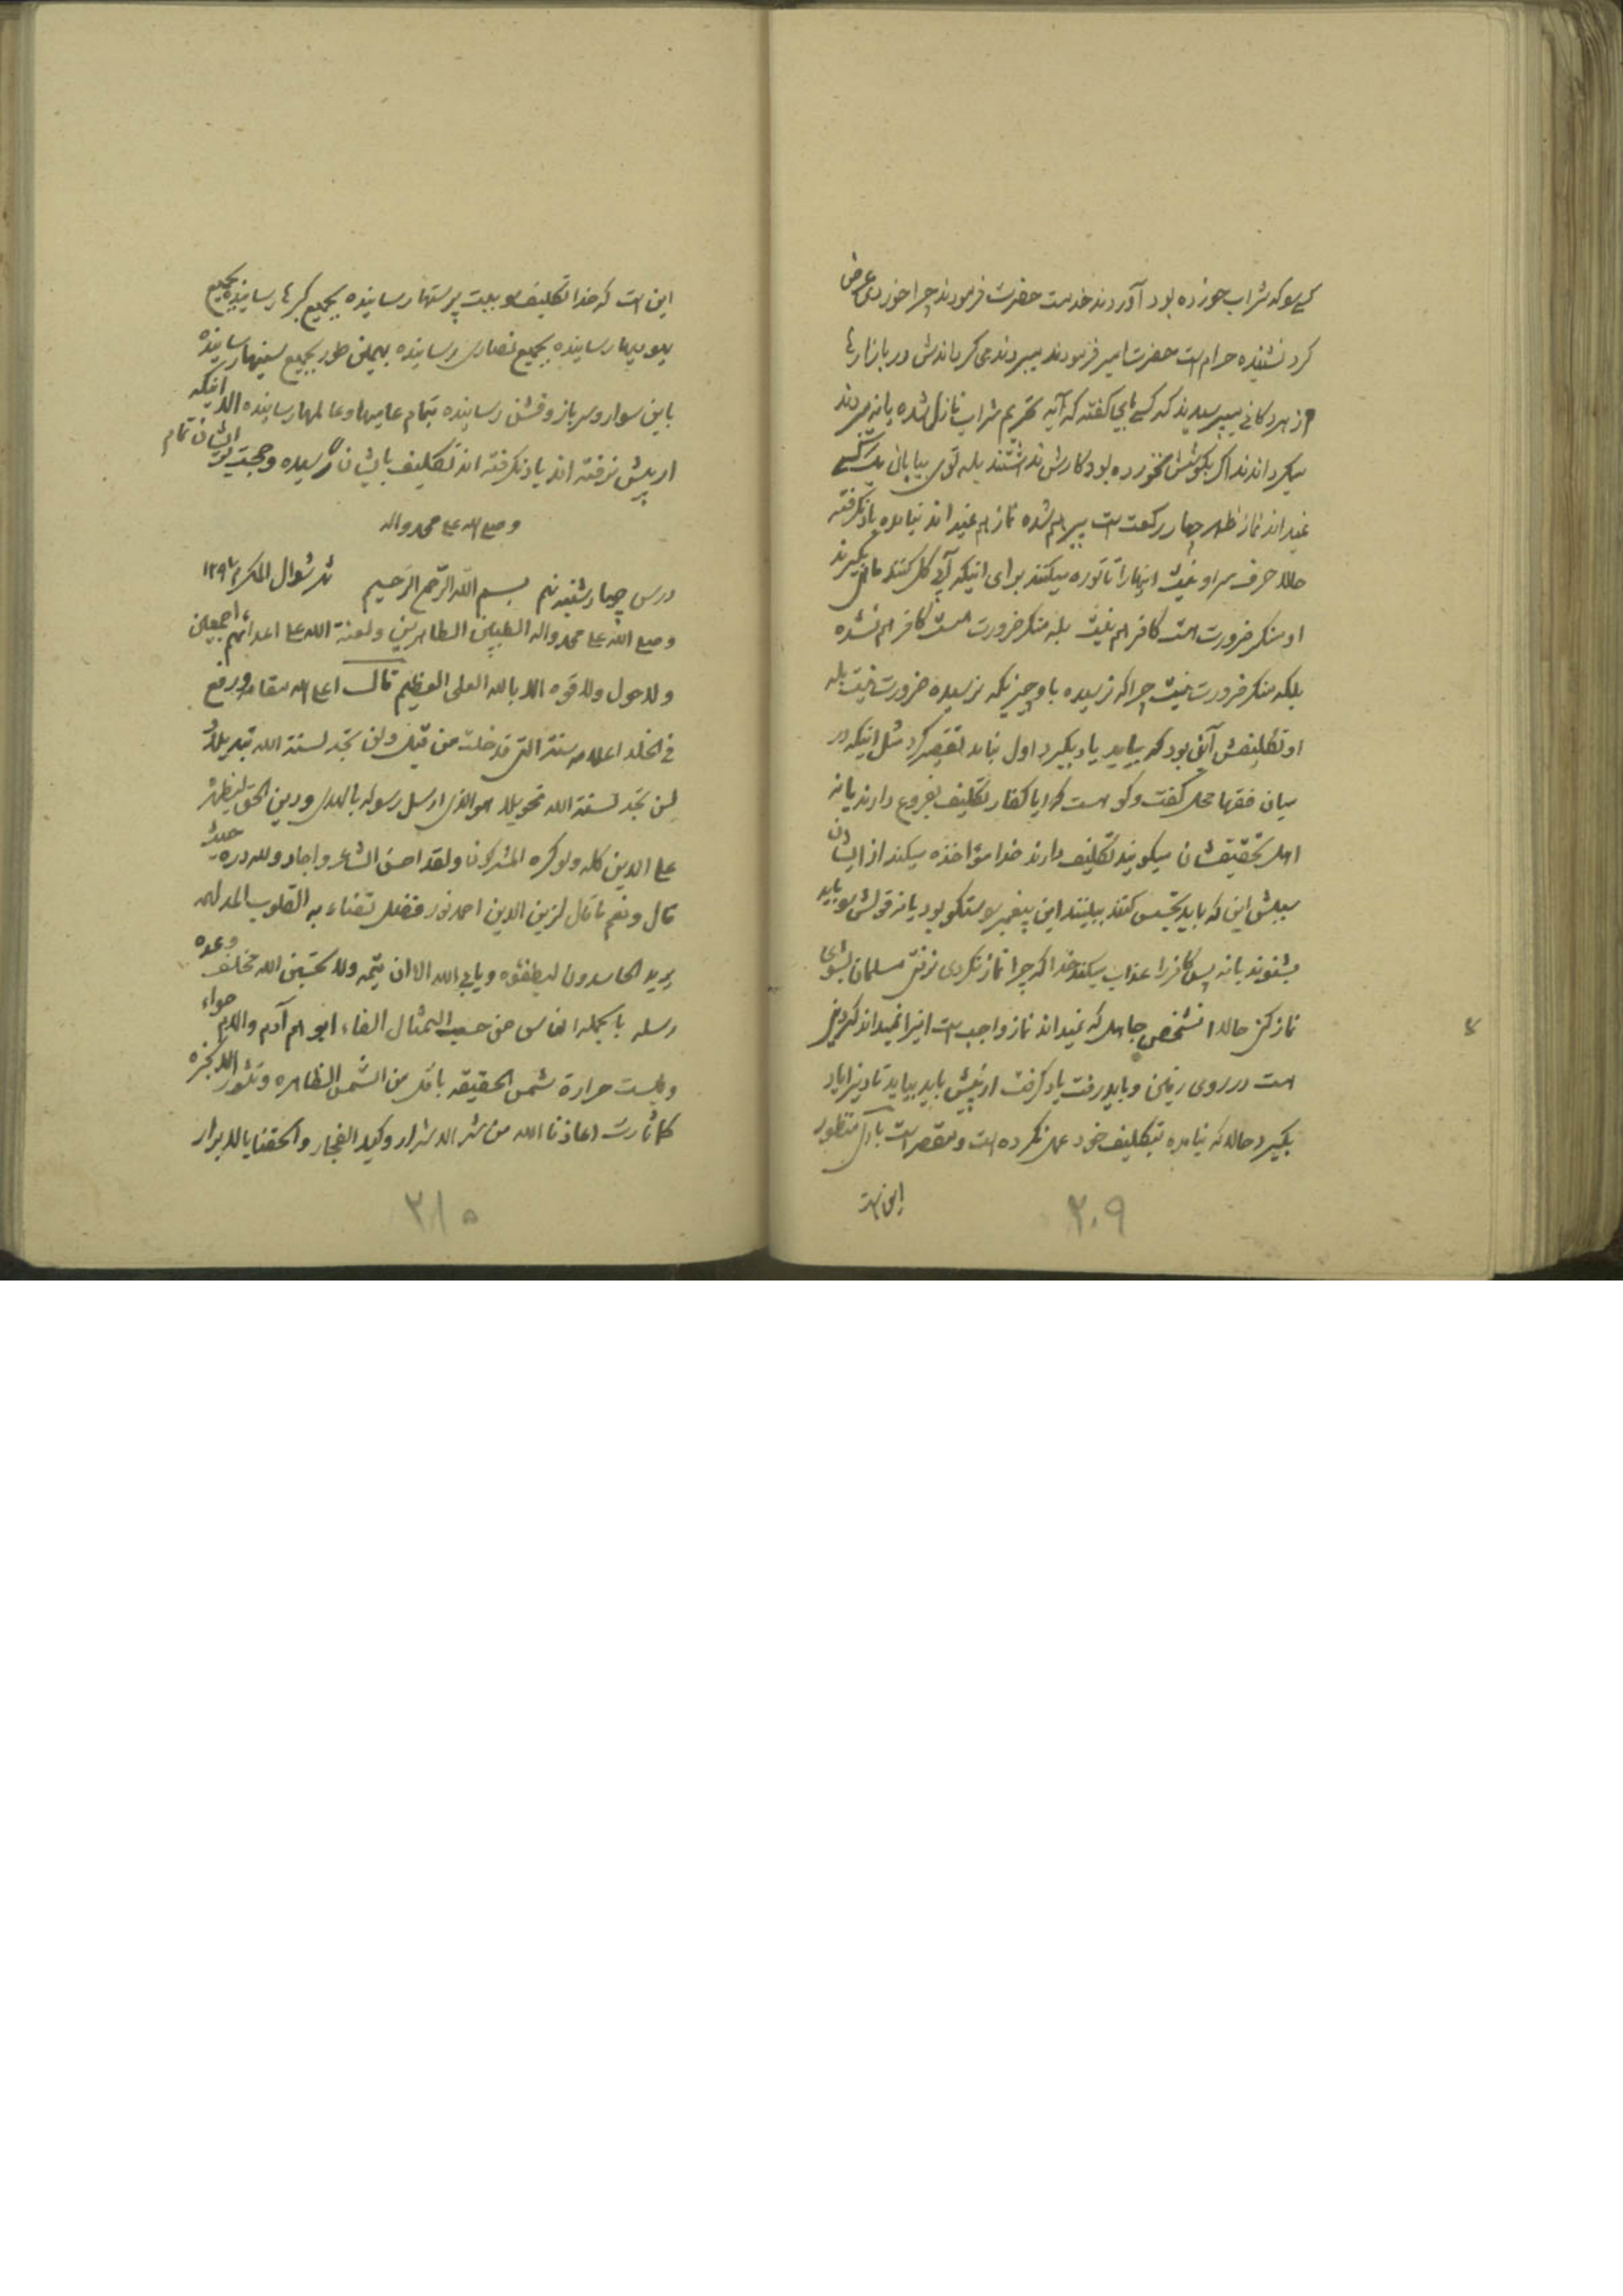 کسی را که شراب خورده بود آوردند خدمت حضرت فرمودند چرا خوردی عرض
کرد نشنیده حرام است حضرت امیر فرمودند ببرند می گرداندش در بازارها
از هر دکانی میپرسیدند که کسی باینجا گفته که آیه تحریم شراب نازل شده یا نه میبردند
میگرداندند اگر بگوشش نخورده بود کارش نداشتند بله توی بیابانی یک کسی
نمیداند نماز ظهر چهار رکعت است پیر هم شده نماز هم نمیداند نیامده یاد نگرفته
حالا حرف سر او نیست اینها را
او منکر ضرورت است کافر هم نیست بله منکر ضرورت است کافر هم نشده
بلکه منکر ضرورت نیست چرا که نرسیده باو چیزیکه نرسیده ضرورت نیست بله
او تکلیفش آنی بود که بیاید یاد بگیرد اول نباید تقصیر کرد مثل اینکه در
میان فقها محل گفت و گو است که ایا کفار تکلیف بفروع دارند یا نه
اهل تحقیقشان میگویند تکلیف دارند خدا مؤاخذه میکند از ایشان
سببش این که باید تجسس کنند ببینند این پیغمبر راستگو بود یا نه قولش را باید
بشنوند یا نه پس کافر را عذاب میکند خدا که چرا نماز نکردی نرفتی مسلمان بشوی
نماز کنی حالا اشخص جاهل که نمیداند نماز واجب است اینرا نمیداند که دینی
است در روی زمین و باید رفت یاد گرفت از پیش باید بیاید تا دین را یاد
بگیرد حالا که نیامده بتکلیف خود عمل نکرده است و مقصر است باری منظور
این است
۲۰۹
این است که خدا تکلیف را ببت پرستها رسانیده بجمیع گبرها رسانیده بجمیع
یهودیها رسانیده بجمیع نصاری رسانیده بهمین طور بجمیع سنیها رسانیده
باین سوار و سرباز و قشن رسانیده بتمام عامیها و عالمها رسانیده الا اینکه
از پیش نرفته اند یاد نگرفته اند تکلیف بایشان رسیده و حجت بر ایشان تمام
و صلی الله علی محمد و اله
درس چهارشنبه نهم بسم الله الرحمن الرحیم شهر شوال المکرم ۱۲۹۷
و صلی الله علی محمد و اله الطیبین الطاهرین و لعنة الله علی اعدائهم اجمعین
و لا حول و لا قوه الا بالله العلی العظیم قال اعلی الله مقامه و رفع
فی الخلد اعلامه سنة الله التی قد خلت من قبل و لن تجد لسنة الله تبدیلا
لن تجد لسنة الله تحویلا هو الذی ارسل رسوله بالهدی و دین الحق لیظهره
علی الدین کله و لو کره المشرکون و لقد احسن الشاعر و اجاد و لله دره حیث
قال و نعم ما قال لزین الدین احمد نور فضل تضاء به القلوب المدلهمه
یرید الحاسدون لیطفئوه و یابی الله الا ان یتمه و لا تحسبن الله مخلف وعده
رسله بالجمله الناس من جهة التمثال اکفاء ابوهم آدم و الام حواء
و لیست حرارة شمس الحقیقه باقل من الشمس الظاهره و تثور الابخره
کلما ثارت اعاذنا الله من شر الاشرار و کید الفجار و الحقنا بالابرار
۲۱۰